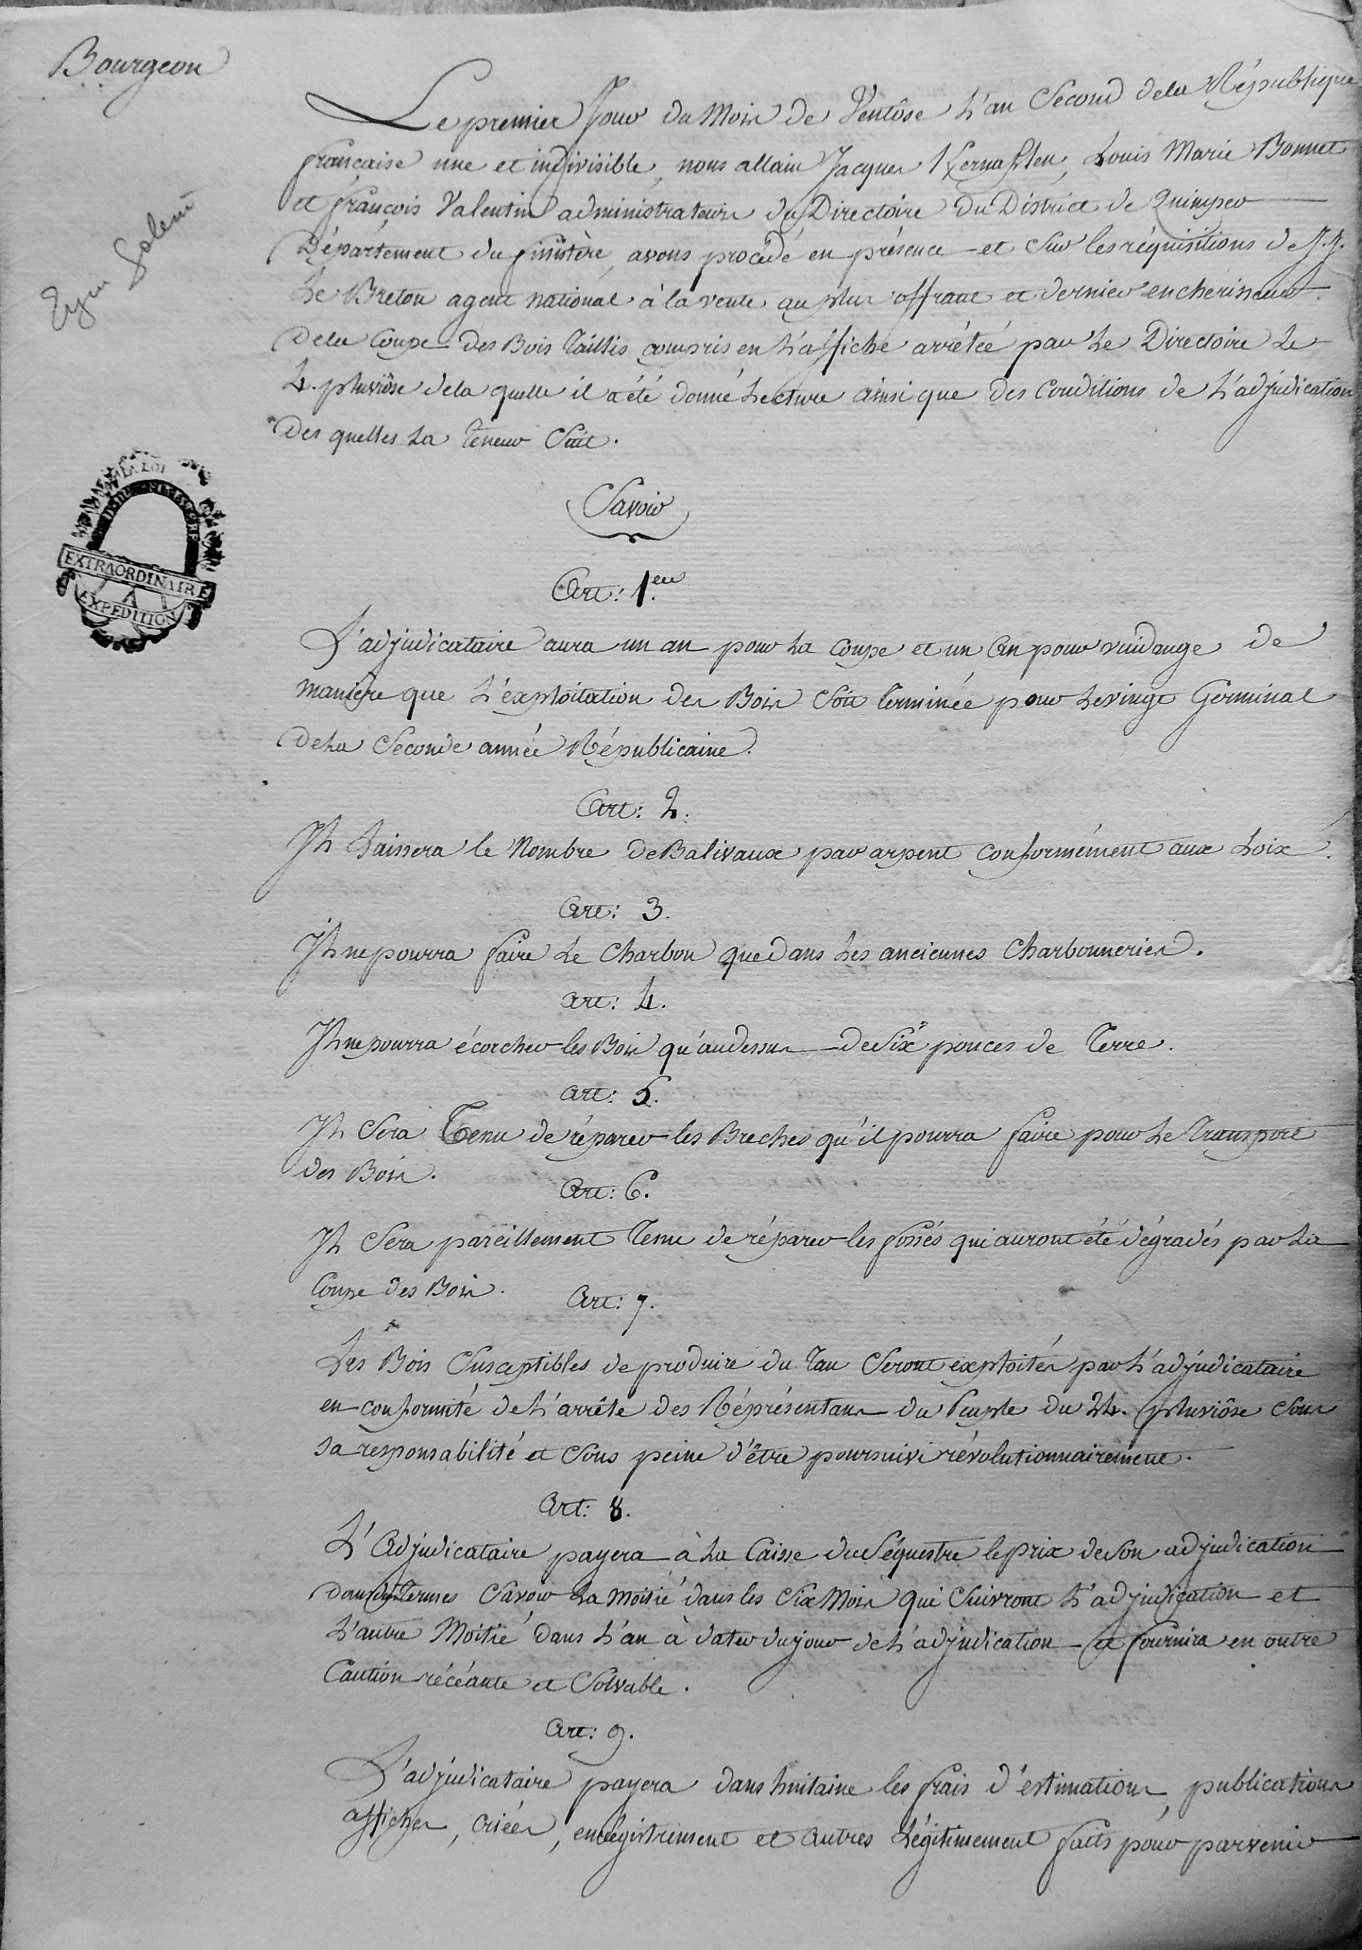 Bourgeon
Le premier Jour du Mois de Ventôse L'an Second de la République
française une et indivisible, nous allain Jacques Kernafflen, Louis Marie Bonnet
et françois Valentin administrateurs du Directoire Du District de Quimper
Département du finistère, avons procédé en présence et Sur les réquisitions de J. J.
Le Breton agent national à la vente au plus offrant et dernier encherisseur
De la Coupe des Bois Taillis compris en L'affiche arrêtée par Le Directoire Le
4. pluviôse de la quelle il a été donné Lecture ainsi que des Conditions de L'adjudication
Des quelles La Teneur Suit.
LA LOI
EXTRAORDINAIRE
EXPEDITION
Savoir
Art: 1.er
L'adjudicataire aura un an pour La Coupe et un an pour vuidange de
manière que L'exploitation des Bois Soit Terminée pour Le vingt Germinal
De La Seconde année Républicaine.
Art: 2.
Il Laissera le Nombre de Balivaux par arpent conformément aux Loix.
Art: 3.
Il ne pourra faire Le Charbon que dans Les anciennes Charbonneries.
Art: 4.
Il ne pourra écorcher les Bois qu'au dessus de Six pouces de Terre.
Art: 5.
Il Sera Tenu de réparer les Breches qu'il pourra faire pour Le Transport
des Bois.
Art: 6.
Il Sera pareillement Tenu de réparer les fossés qui auront été dégradés par La
Coupe des Bois.
Art: 7.
Les Bois Susceptibles de produire du Tan Seront exploités par L'adjudicataire
en conformité de L'arrêté des Réprésentans du Peuple du 24. pluviôse Sous
Sa responsabilité et Sous peine d'être poursuivi révolutionnairement.
Art: 8.
L'Adjudicataire payera à La Caisse du Séquestre le prix de Son adjudication
dans Termes Savoir La moitié dans les Six Mois qui Suivront L'adjudication et
L'autre Moitié dans L'an à dater du jour de L'adjudication et fournira en outre
Caution récéante et Solvable.
Art: 9.
L'adjudicataire payera dans huitaine les frais d'estimation, publications
affiches, criées, enregistrement et autres Légitimement faits pour parvenir